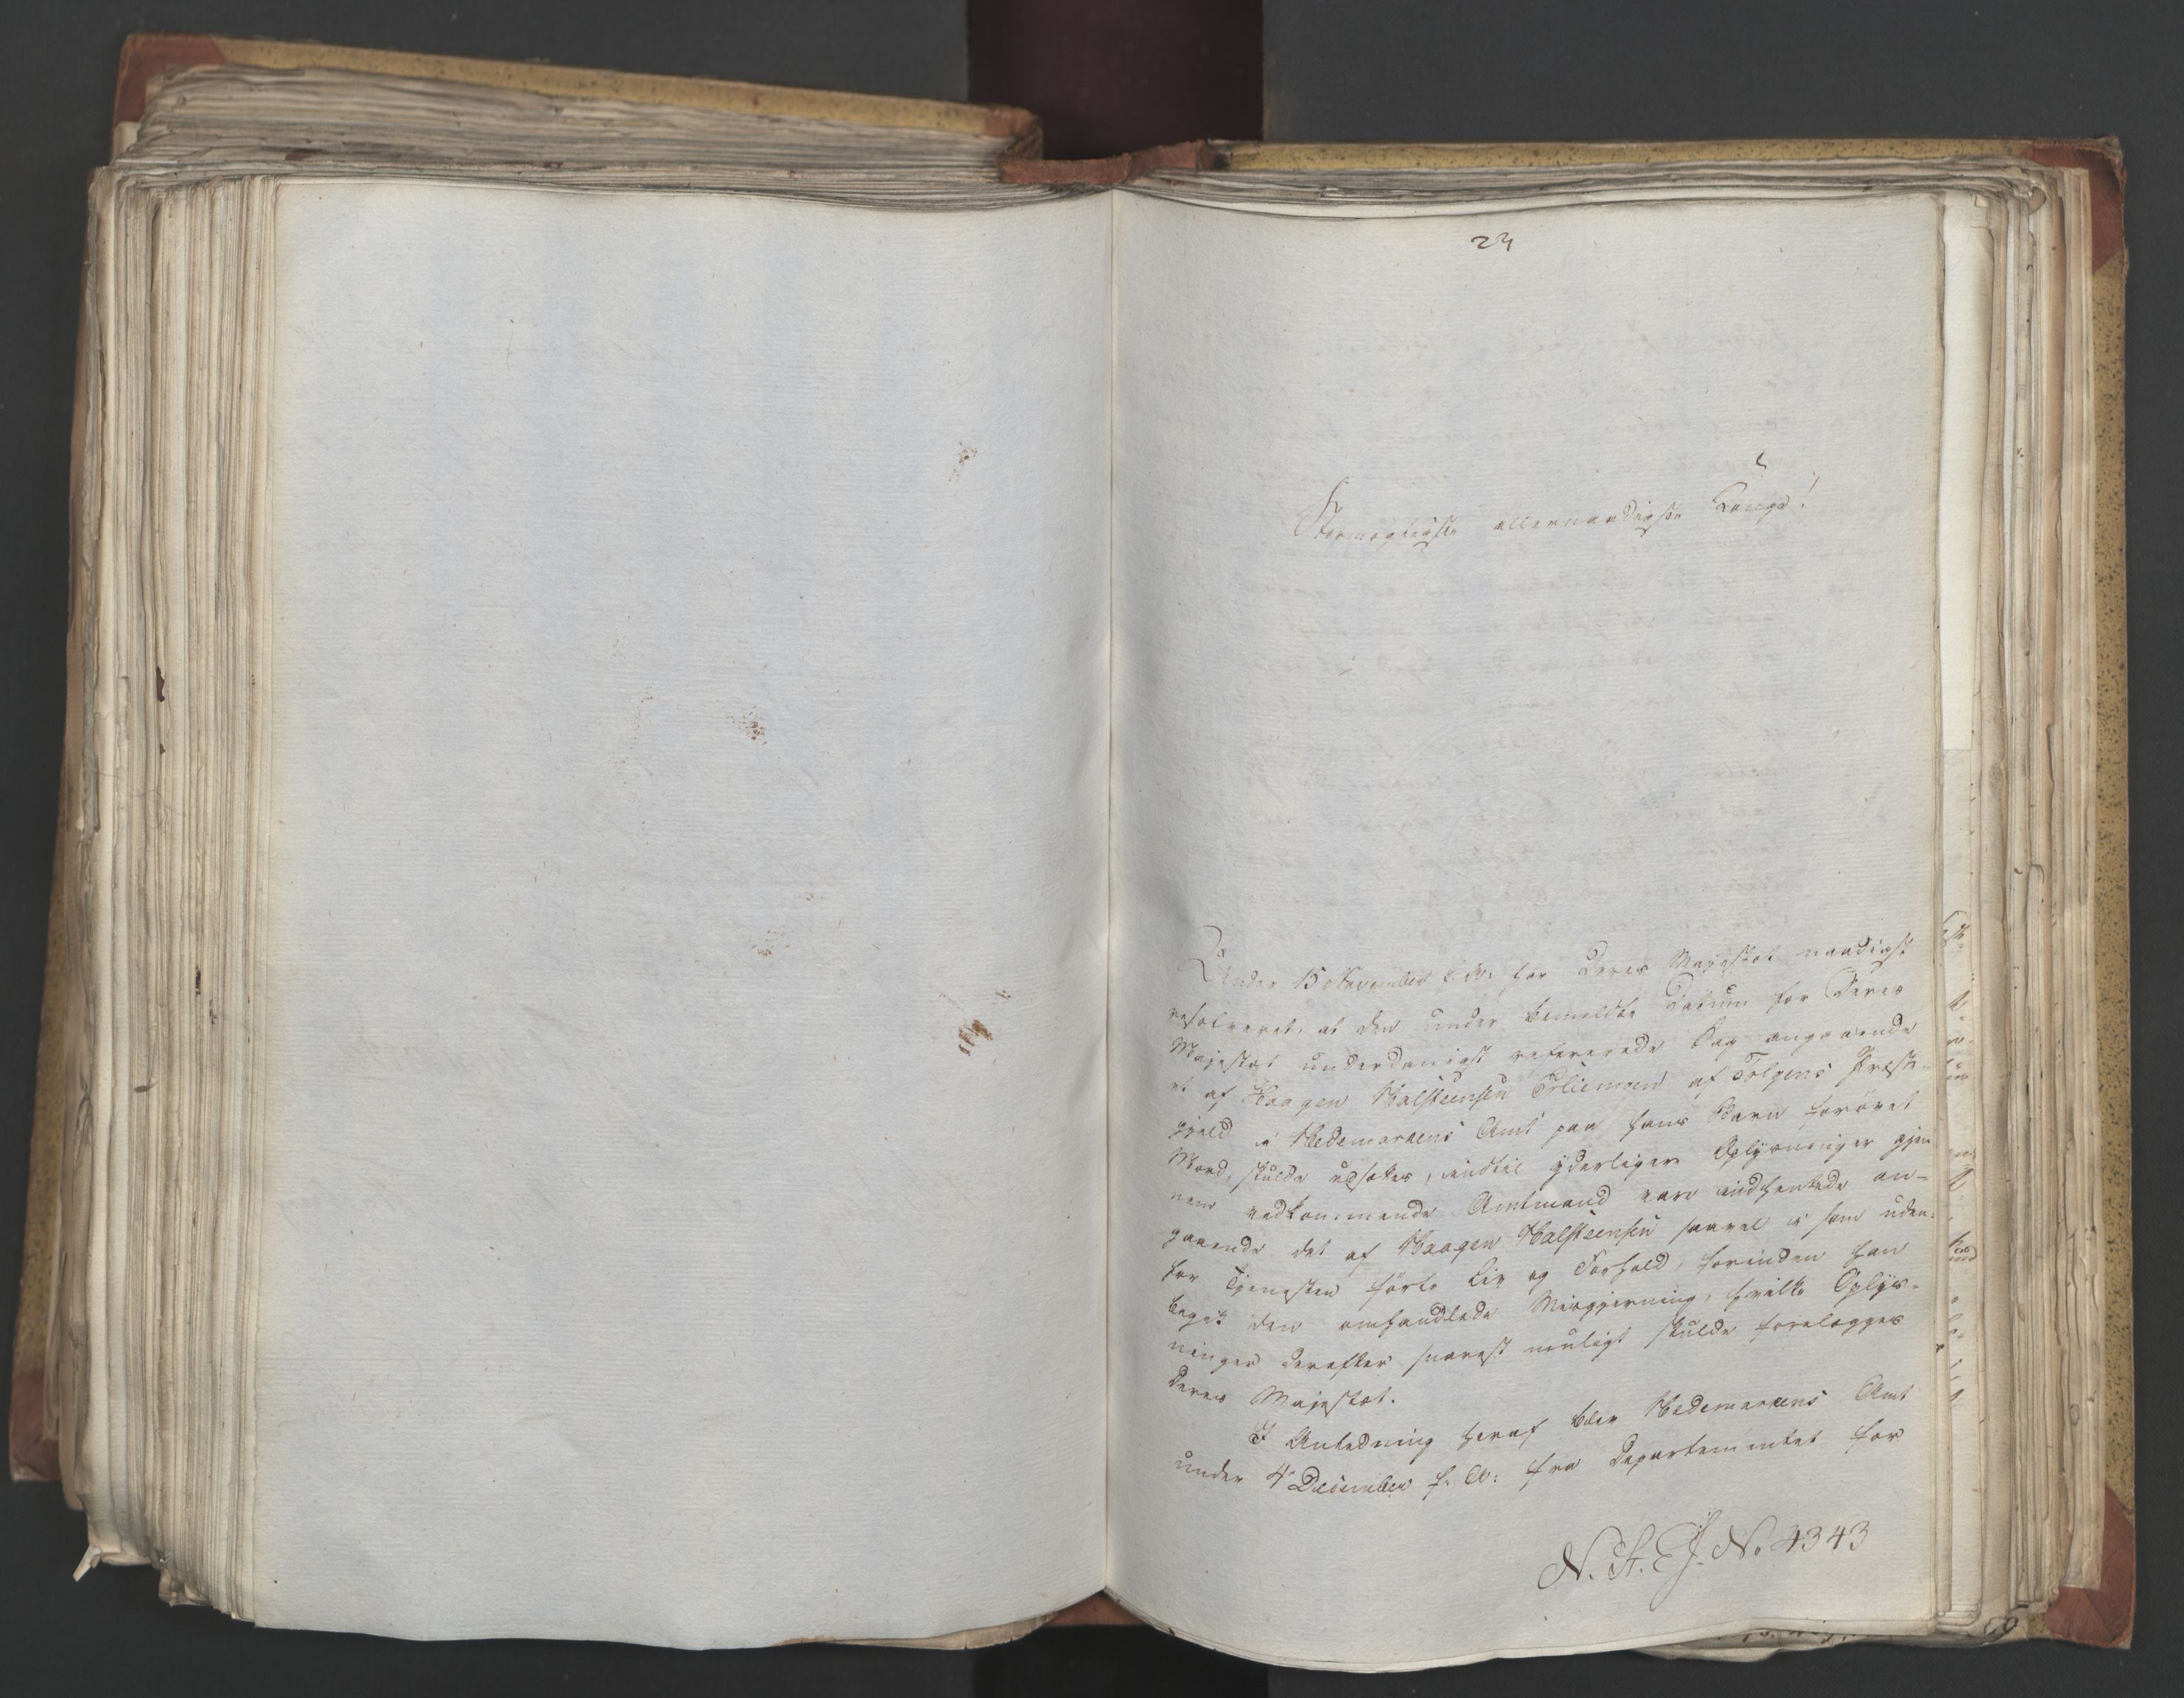 24
Stormægtigste allernaadigste Konge!
Under 15 November f. A. har Deres Majestæt naadigst
resolveret, at den under bemeldte Datum for Deres
Majestæt underdanigst refererede Sag angaaende
et af Haagen Halsteensen Erliemoen af Tolgens Præste-
gjeld i Hedemarkens Amt paa hans Barn forøvet
Mord, skulde udsættes, indtil yderligere Oplysninger gjen-
nem vedkommende Amtmand vare indhentede an-
gaaende det af Haagen Halsteensen saavel i som uden-
for Tjenesten førte Liv og Forhold, forinden han
begik den omhandlede Misgjerning, hvilke Oplys-
ninger derefter snarest muligt skulde forelægges
Deres Majestæt.
I Anledning heraf blev Hedemarkens Amt
under 4 December f. A: fra Departementet for
N. St. E. J. No 4343